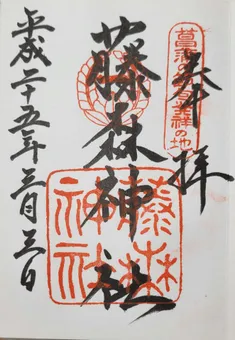 奉拝
菖蒲の節句発祥の地
藤森神社
藤森神社
平成二十五年三月三日